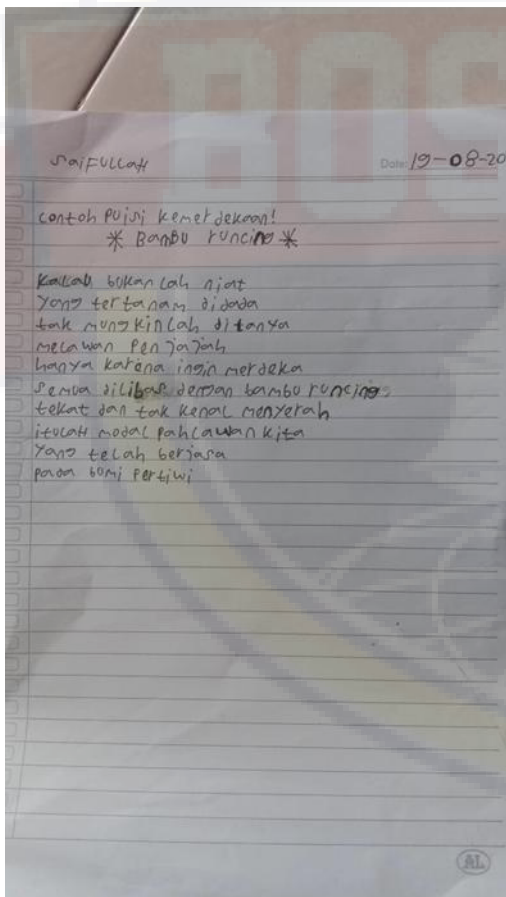 BOS
SaiFULLAH
Date: 19-08-20
contoh Puisi kemerdekaan!
* Bambu runcing *
Kalau bukan lah niat
Yang tertanam didada
tak mungkinlah ditanya
melawan Penjajah
hanya karena ingin merdeka
Semua dilibas dengan bambu runcing,
tekat dan tak kenal menyerah
itulah modal pahlawan kita
Yang telah berjasa
pada bumi Pertiwi
AL